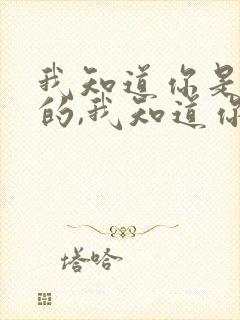 我知道你是
的,我知道你
塔哈